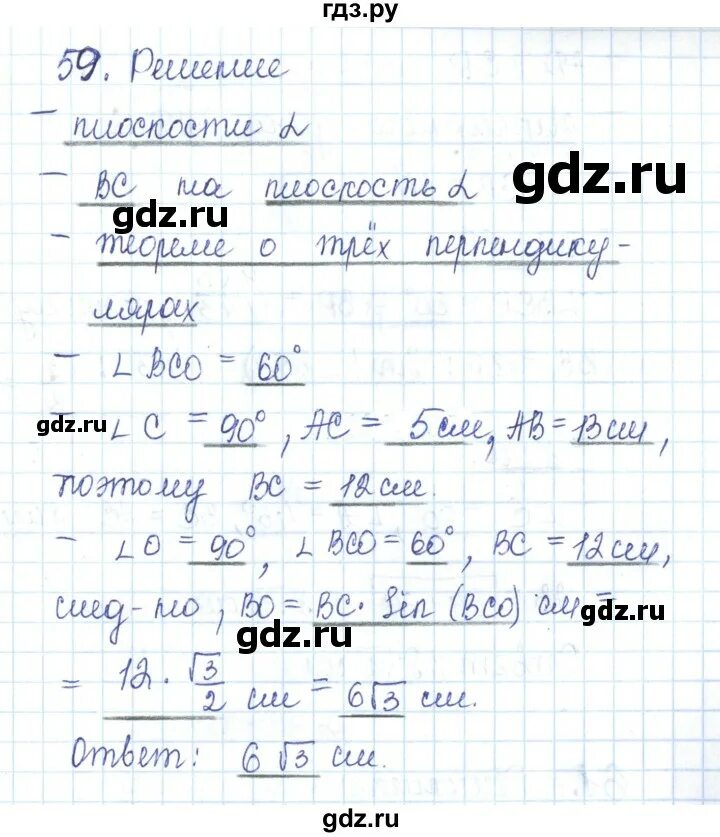 гдз.ру
59. Решение
– плоскости α
– BC на плоскость α
gdz.ru
gdz.ru
– теореме о трёх перпендику-
лярах
– ∠BCO = 60°
gdz.ru
– ∠C = 90°, AC = 5 см, AB = 13 см,
поэтому BC = 12 см.
– ∠O = 90°, ∠BCO = 60°, BC = 12 см,
след-но, BO = BC · Sin (BCO) см =
gdz.ru
gdz.ru
= 12 · √3/2 см = 6√3 см.
Ответ: 6√3 см.
gdz.ru